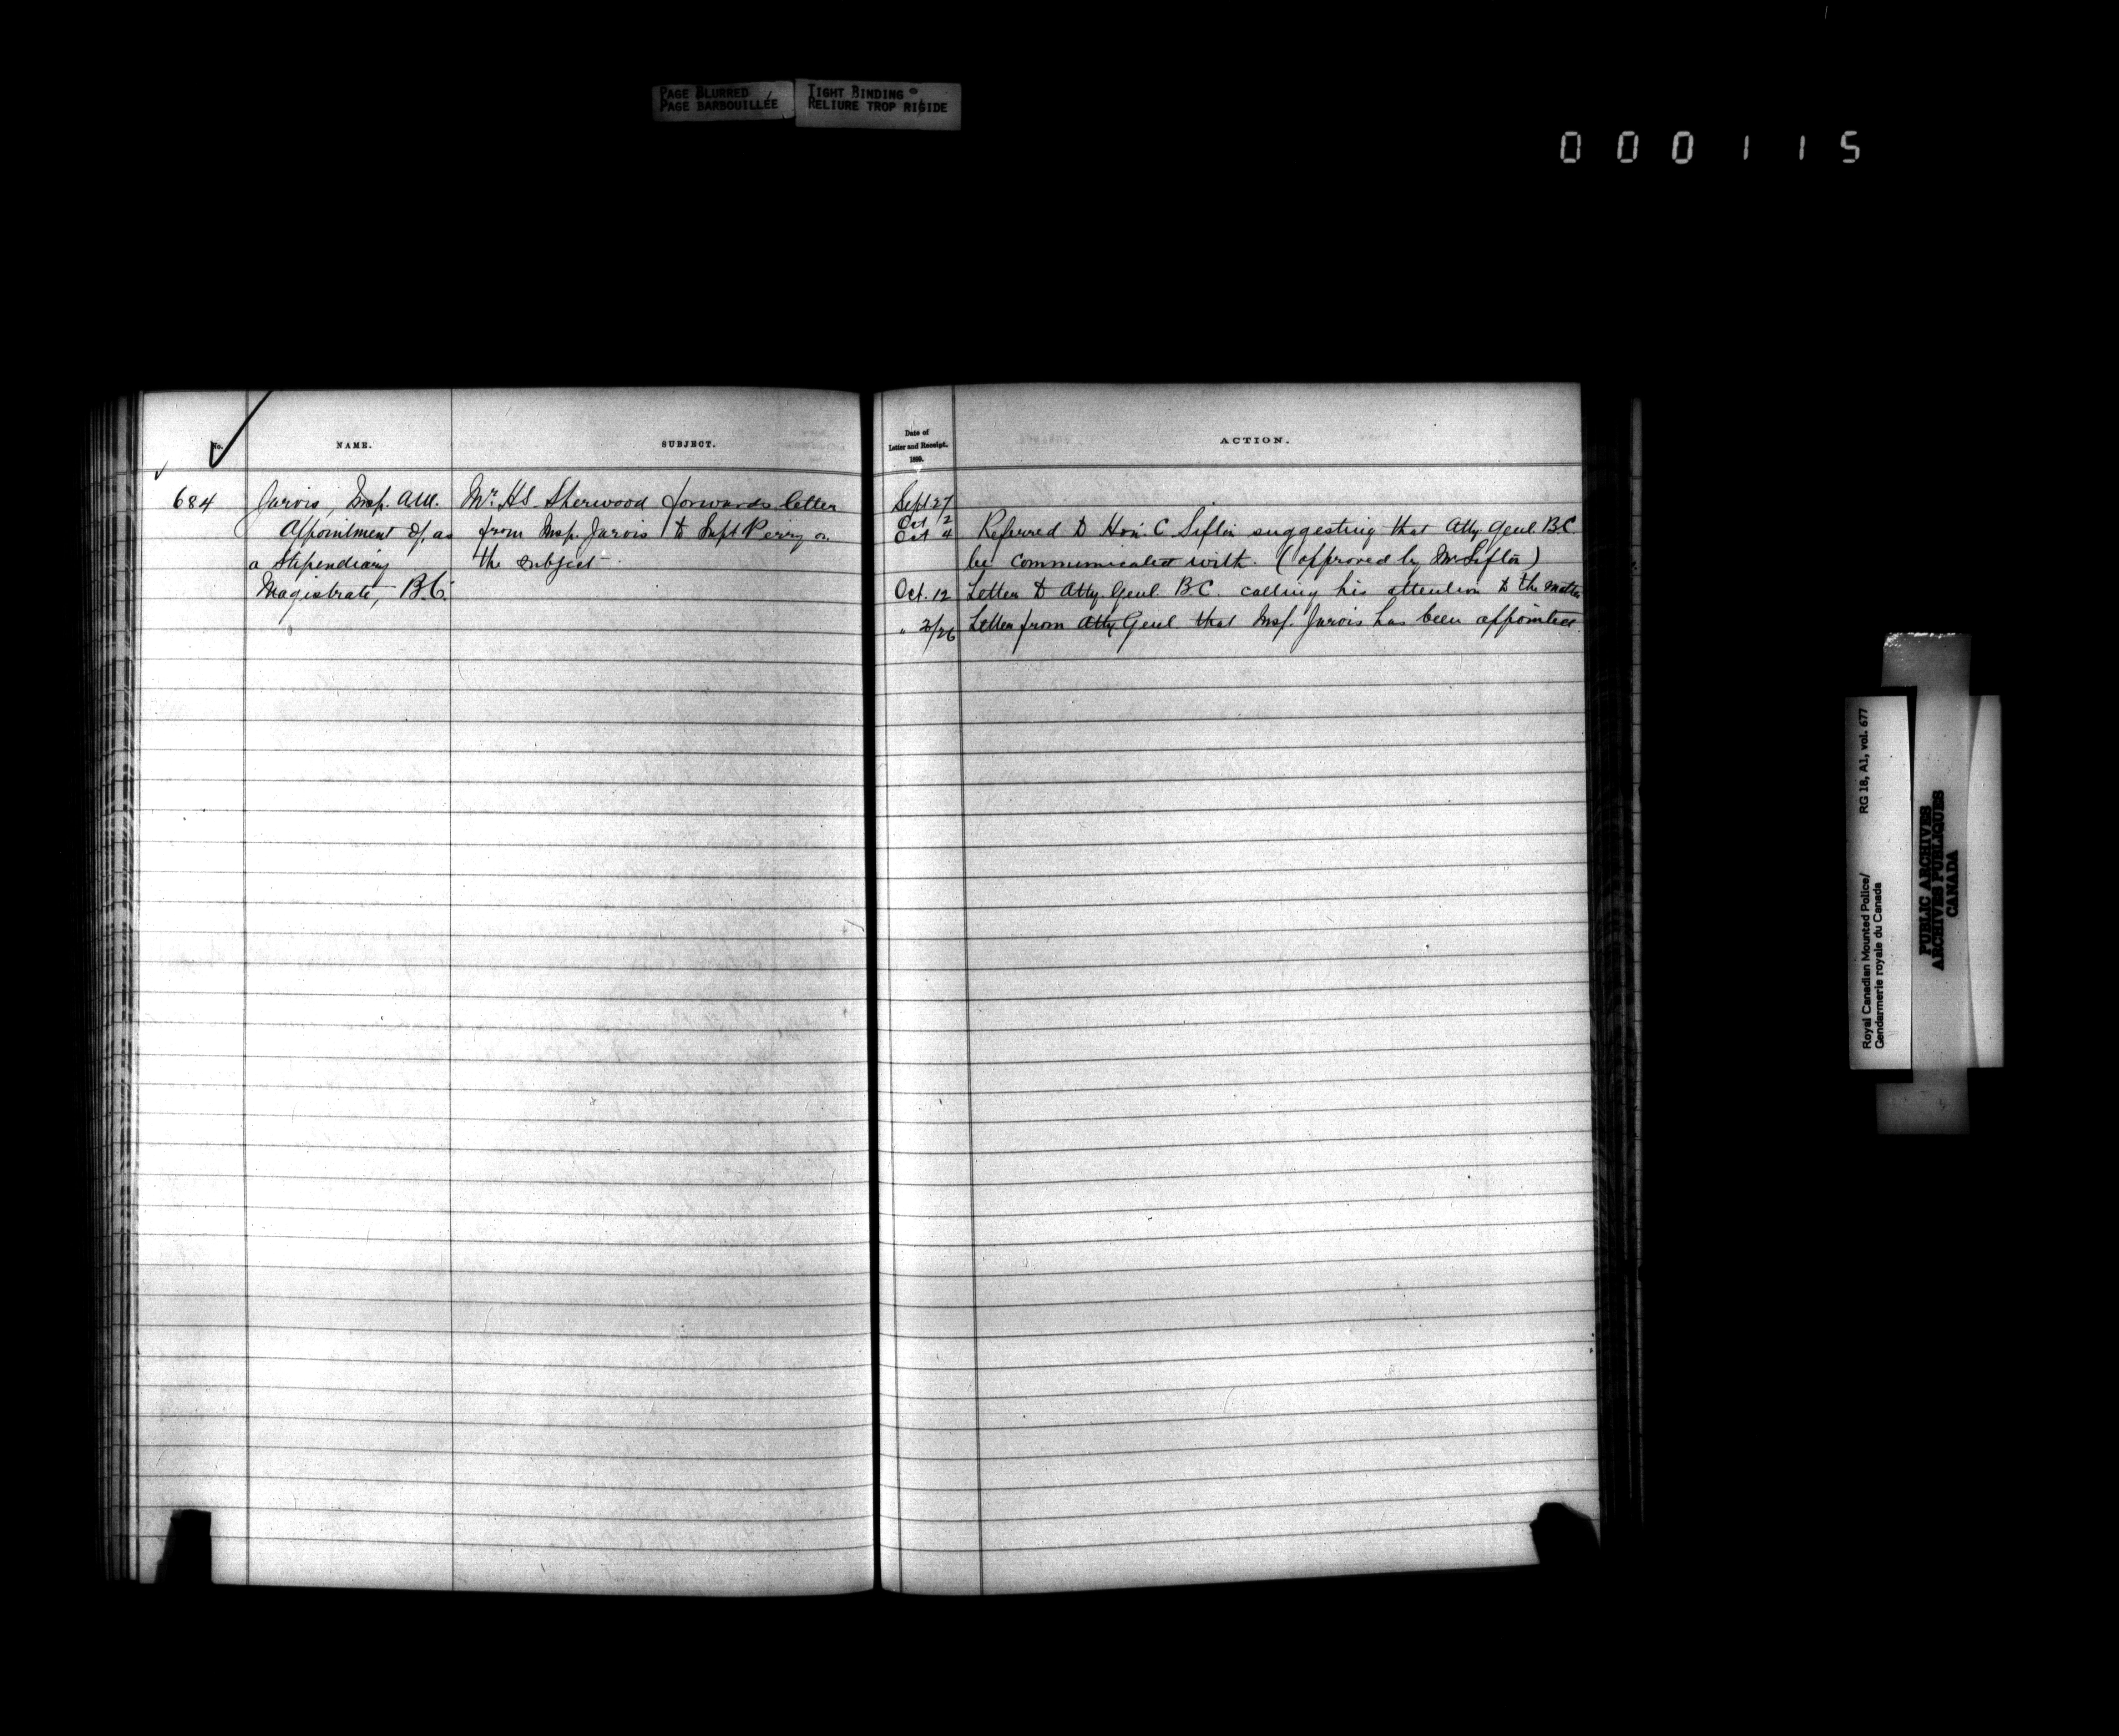 PAGE BLURRED
PAGE BARBOUILLÉE
TIGHT BINDING
RELIURE TROP RIGIDE
000115
No.
NAME.
SUBJECT.
Date of
Letter and Receipt.
1899.
ACTION.
684
Jarvis, Insp. A.M.
Appointment of, as
a Stipendiary
Magistrate, B.C.
Mr. H.S. Sherwood forwards letter
from Insp. Jarvis to Supt Perry on
the subject.
Sept 27
Oct 2
Oct 4 Referred to Hon. C Sifton suggesting that Atty Genl B.C.
be communicated with. (approved by Mr Sifton)
Oct. 12 Letter to Atty. Genl. B.C. calling his attention to the matter
" /26 Letter from Atty Genl that Insp. Jarvis has been appointed.
Royal Canadian Mounted Police/
Gendarmerie royale du Canada
RG 18, A1, vol. 677
PUBLIC ARCHIVES
ARCHIVES PUBLIQUES
CANADA